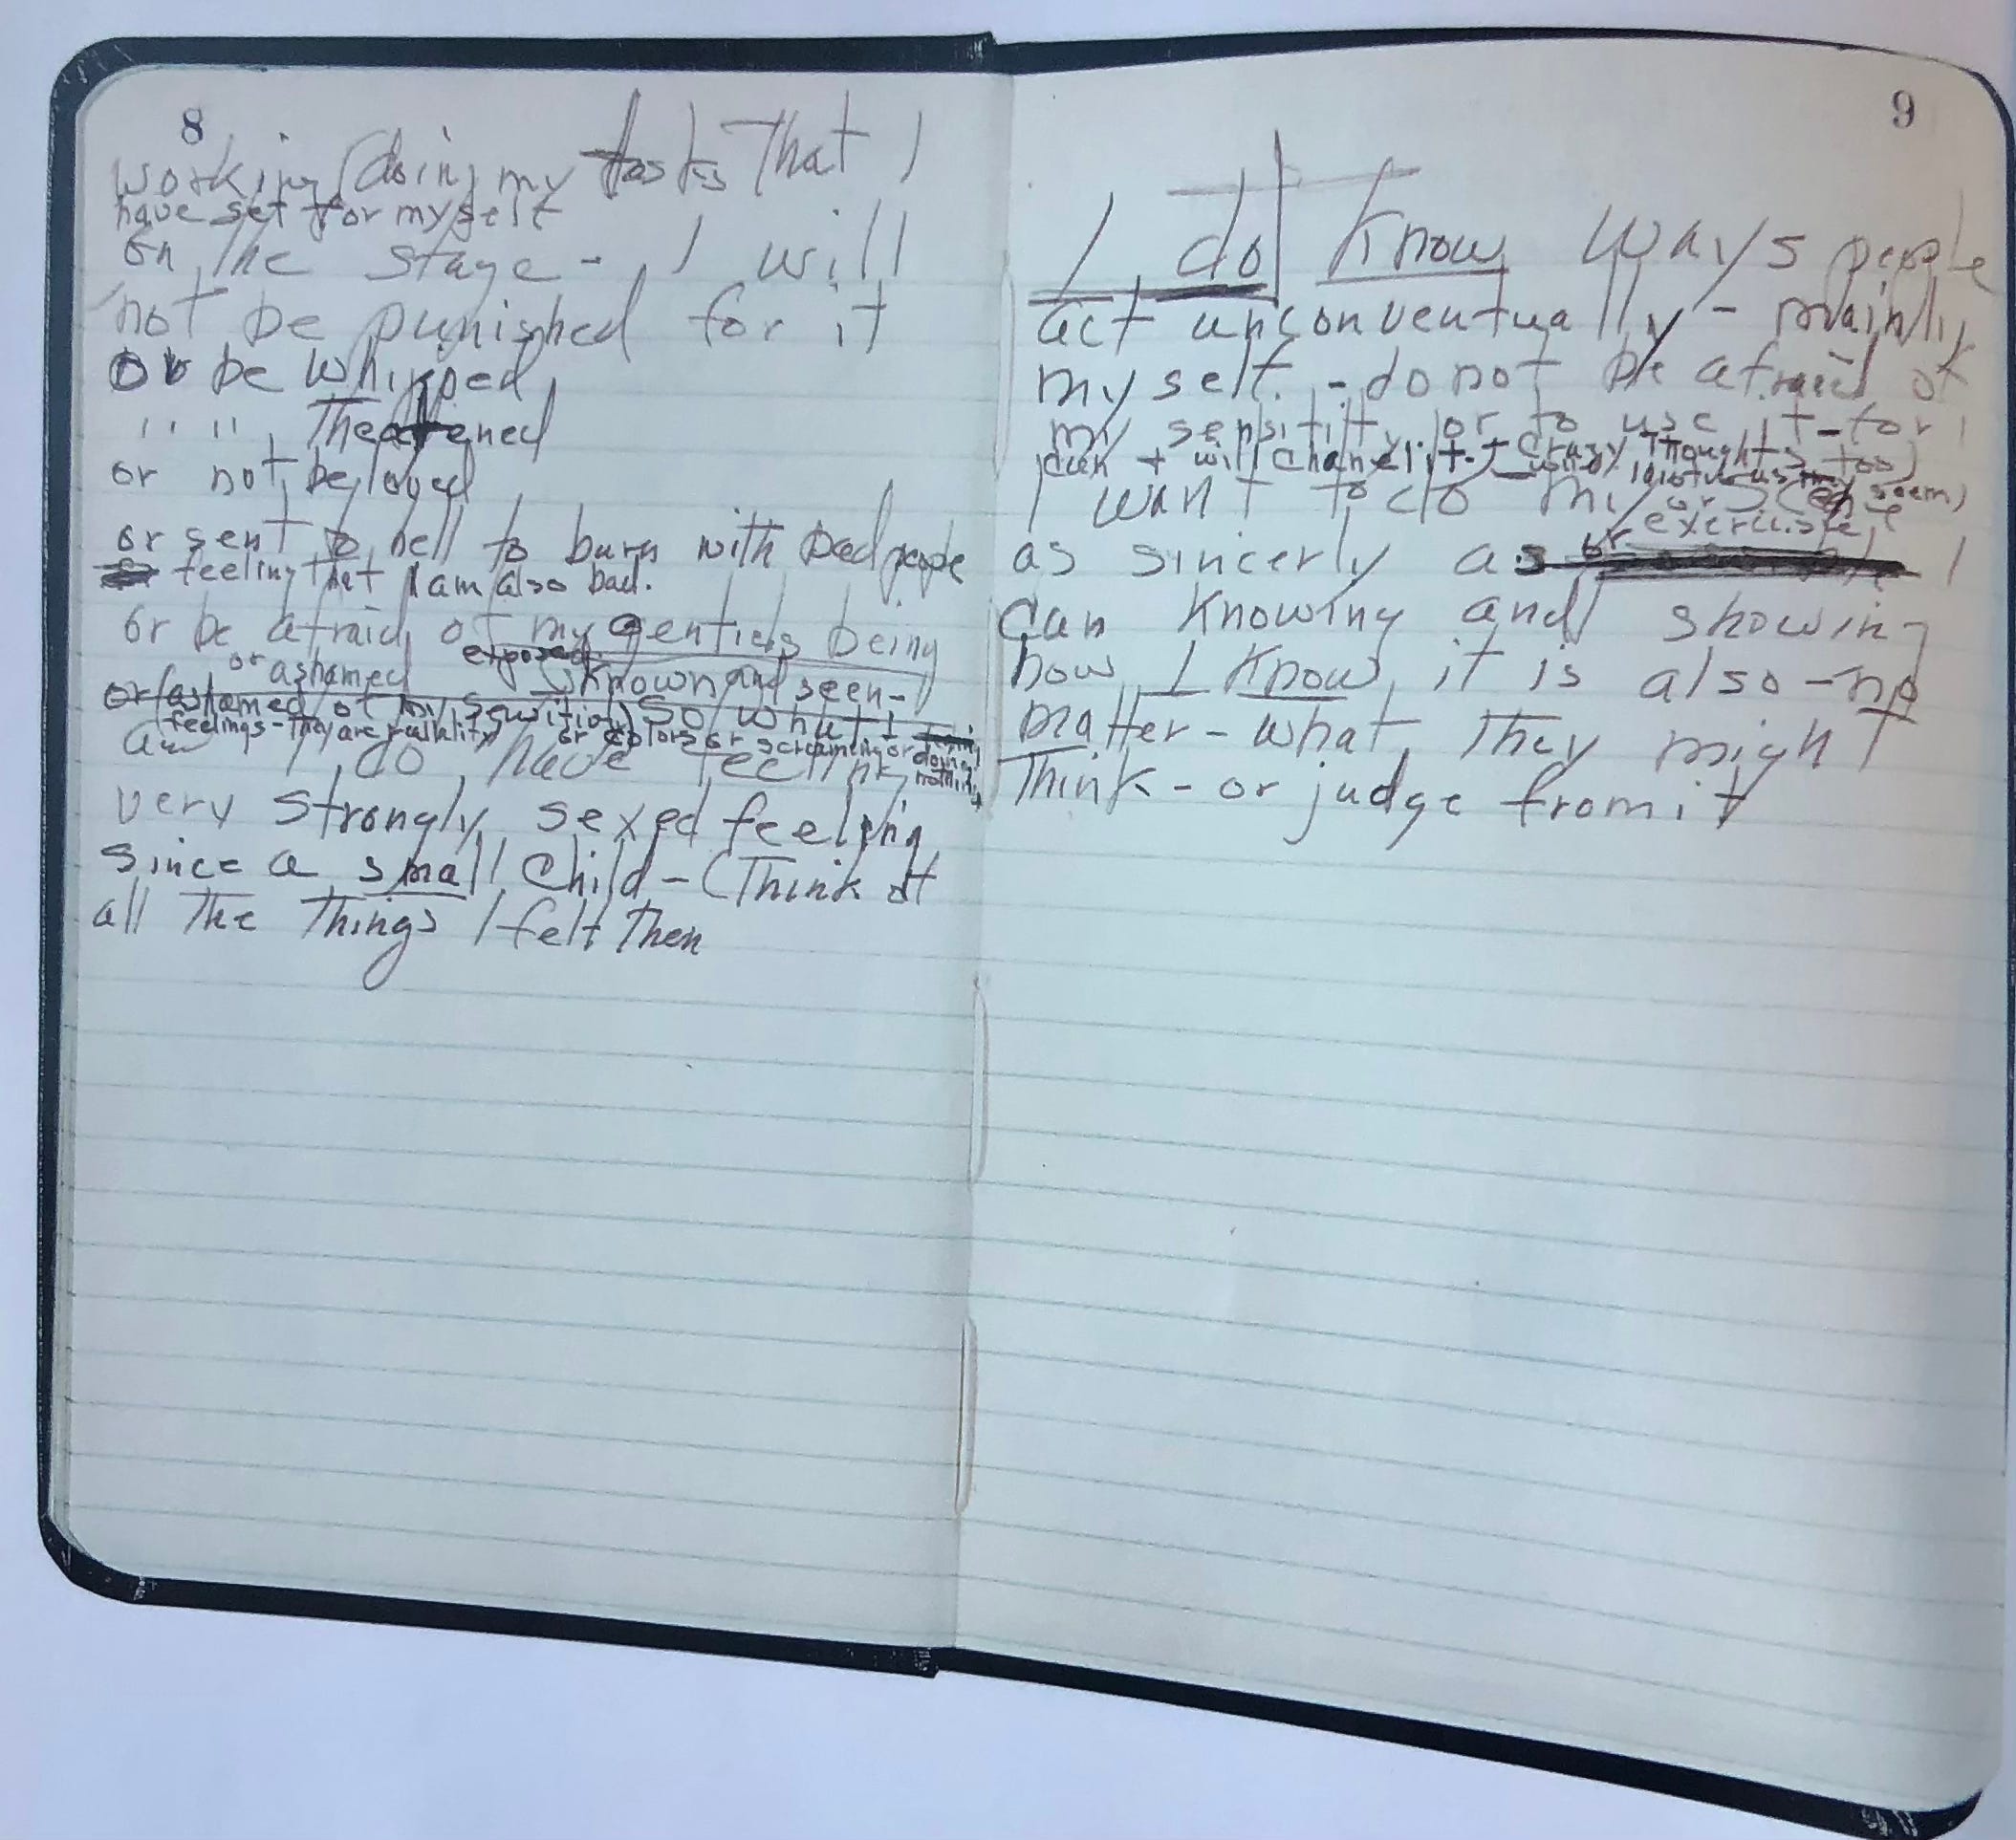 8
working (doing my tasks that I
have set for myself
on the stage - I will
not be punished for it
or be whipped
" " Theatened
or not be loved
or sent to hell to burn with bad people
feeling that I am also bad.
or be afraid of my genitals being
or ashamed exposed known and seen -
or (ashamed of my sensitive) so what
feelings - they are reality or colors or screaming or doing
nothing
I do have feeling
very strongly sexed feeling
since a small child - (Think of
all The Things I felt Then
9
I do know ways people
act unconventually - mainly
myself - do not be afraid of
my sensitity or to use it - for I
can + will chanel it + crazy Thoughts too
I want to do my scene
or exercises
as sincerly as I
can knowing and showing
how I know it is also - no
matter - what They might
Think - or judge from it